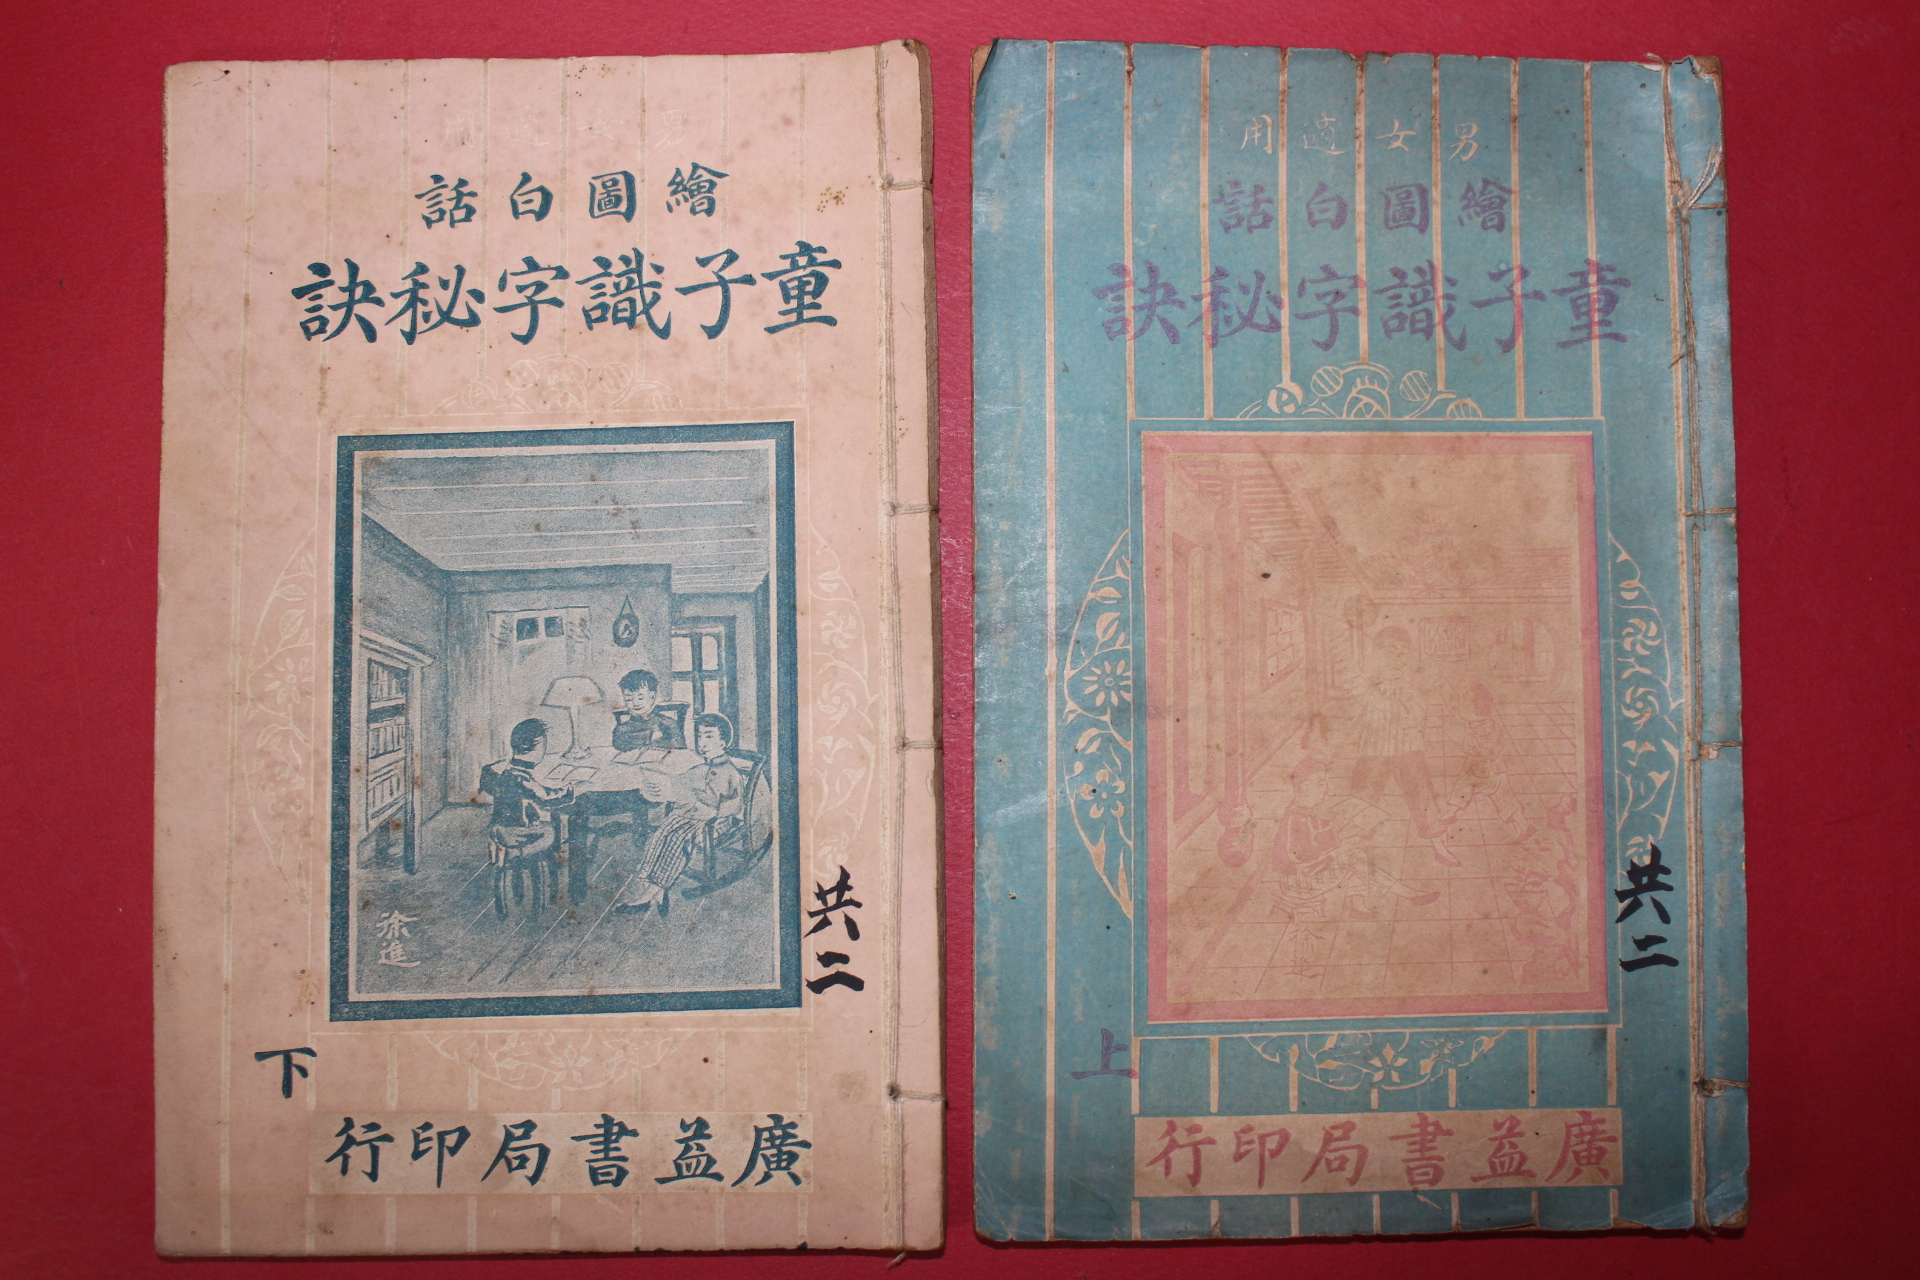 男女適用
繪圖白話
童子識字秘訣
徐進
共二
下
廣益書局印行
男女適用
繪圖白話
童子識字秘訣
徐進
共二
上
廣益書局印行